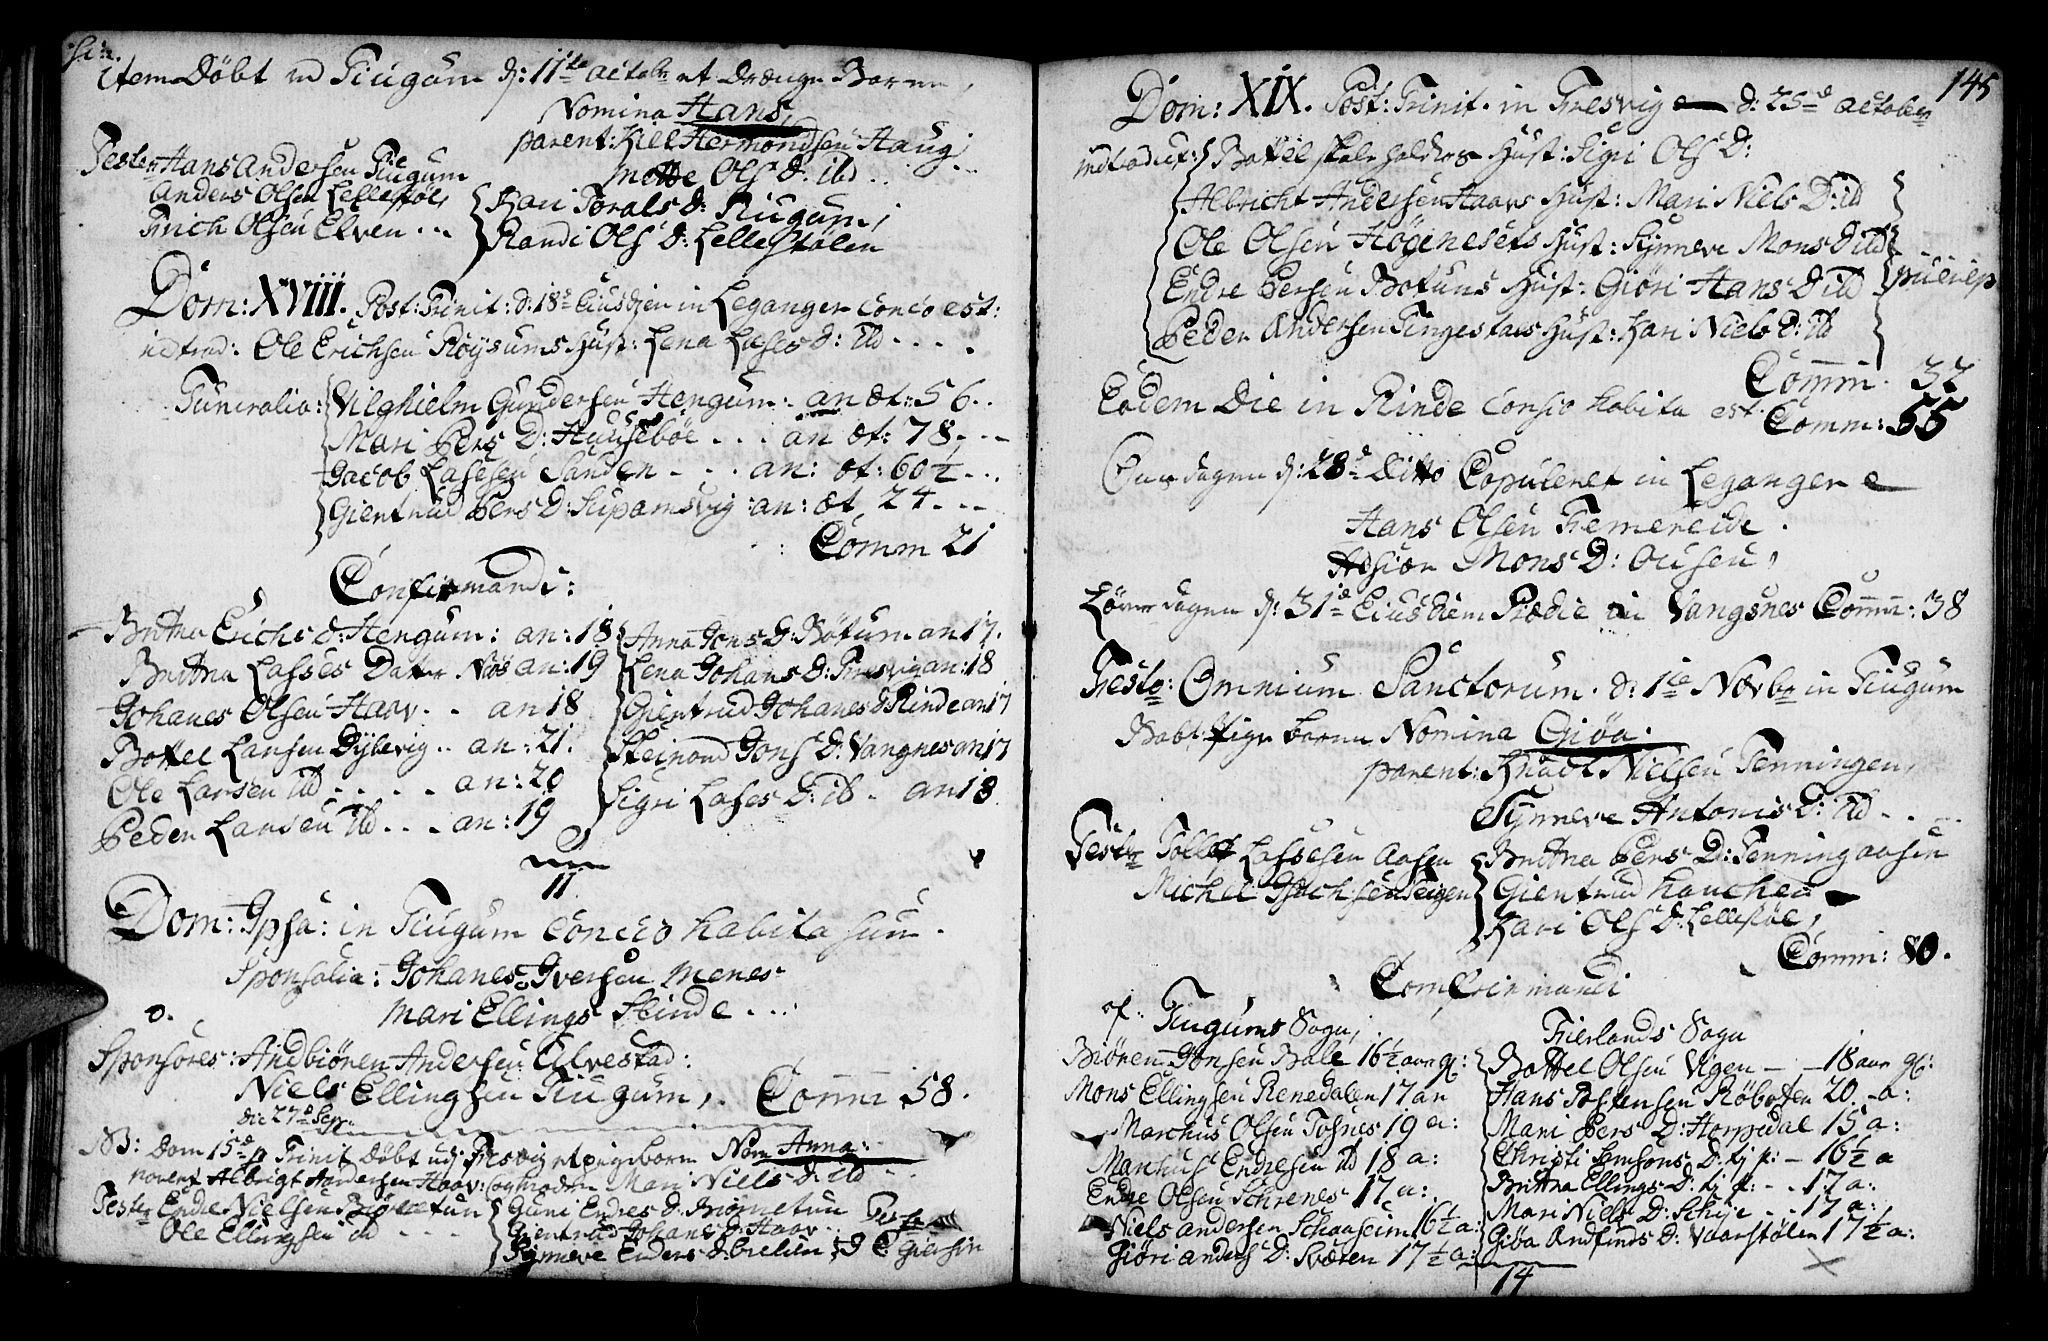 Item Döbt ved Tiugum d: 11te octobr et Drænge Barn,
Nomina Hans,
parent: Kield Hermondsen Haug
Mette Ols d: ibd
Testes Hans Andersen Tiugum
Anders Olsen Lellestöl,
Erich Olsen Elven
Kari Torals d: Tiugum,
Randi Ols d: Lellestölen
Dom: XVIII. Post: Trinit: d: 18de Ejusdem in Leganger Concio est:
introd: Ole Erichsen Röysums Hust: Lena Lases d: ibd
Funeralia: Vilghielm Gundersen Hengum: an æt: 56
Mari Pers D: Huseböe an æt: 78
Jacob Lasesen Sanden an: æt: 60½
Giertrud Pers D: an: æt 24
Comm 21
Confirmandi:
Britha Erichs d: Hengum: an: 18
Britha Lasses Datter Nøs an: 19
Johanes Olsen Haav an 18
Bottel Larsen Dyslevig an: 21.
Ole Larsen ibd an: 20
Peder Larsen ibd an: 19
Anna Jons D: Bøtum an 17.
Lena Johans D: Fresvig an: 18
Giertrud Johanes d Rinde an 17
Steinond Jons D: Vangnes an 17
Sigri Lases D: ib an 18
11
Dom: Ipsa: in Tiugum Concio habita sum.
Sponsalia: Johanes Iversen Menes
Mari Ellings Hinde
Sponsores: Andbiören Andersen Elvestad:
Niels Ellingsen Tiugum, Comm 58.
die 27de Sepr:
NB: Dom 15de p Trinit Döbt udj Fresvig et pigebarn Nom Anna:
parent Albrigt Andersen Haav: og modern Mari Niels d: ibd
Testes Endre Nielsen Biörnetun
Ole Ellingsen ibd
Guri Endres d: Biørnetun
Giertrud Johans d: Haav
Synneve Enders d:
145
Dom: XIX. Post: Trinit. in Fresvig d: 25de october
introduct: Bottel Skoleholders Hust: Sigri Ols D:
Albricht Andersen Haavs Hust: Mari Niels D: ibd
Ole Olsen Högenesets Hust: Synneve Mons D ibd
Endre Persen Botuns Hust: Giöri Hans D ibd puerp
Peder Andersen Tingestads Hust: Kari Niels d: ibd
Comm. 32
Eodem Die in Rinde Consio habita est. Comm: 55
Onsdagen d: 28de Ditto Copuleret in Leganger
Hans Olsen Fremereide
Mons D: Ousen,
Löverdagen d: 31de Ejusdem Prædic in Vangsnes Comm: 38
Festo: Omnium Sanctorum. d: 1te Novbr in Tiugum
Babt. Pige barn Nomina Giöa.
parent: Knudt Nielsen Tenningen,
Synneve Antonis D: ibd
Test: Tollef Lassesen Aasen
Michel
Britha Pers D: Tenning aasen
Giertrud
Kari Ols D: Lellestöl,
Comm: 80.
Confirmandi
af: Tiugums Sogn,
Biören Jonsen Bale 16½ aar gl:
Mons Ellingsen Renedalen 17 an
Marchus Olsen Tosnes 19 a:
Marchus Endresen ibd 18 a:
Endre Olsen Schrenes 17 a:
Niels Andersen 16½ a:
Giöri Anders D: Sværen 17½ a:
Fierlands Sogn
Bottel Olsen Vigen 18 aar gl:
Hans Postensen Röboten 20 a:
Mari Pers D: Horpedal 15 a:
Christi Semsons D: 16½ a
Britha Ellings D: 17 a:
Mari Niels D: Scheje 17 a:
Giöa Andfinds D: Vaarstölen 17½ a:
14